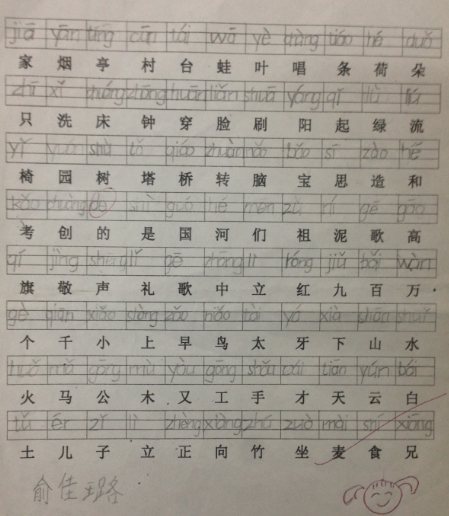 jiā yān tíng cūn tái wā yè chàng tiáo hé duǒ
家 烟 亭 村 台 蛙 叶 唱 条 荷 朵
zhī xǐ chuáng zhōng chuān liǎn shuā yáng qǐ lǜ liú
只 洗 床 钟 穿 脸 刷 阳 起 绿 流
yǐ yuán shù tǎ qiáo zhuàn nǎo bǎo sī zào hé
椅 园 树 塔 桥 转 脑 宝 思 造 和
kǎo chuàng de shì guó hé men zǔ ní gē gāo
考 创 的 是 国 河 们 祖 泥 歌 高
qí jìng shēng lǐ gē zhōng lì hóng jiǔ bǎi wàn
旗 敬 声 礼 歌 中 立 红 九 百 万
gè qiān xiǎo shàng zǎo niǎo tài yá xià shān shuǐ
个 千 小 上 早 鸟 太 牙 下 山 水
huǒ mǎ gōng mù yòu gōng shǒu cái tiān yún bái
火 马 公 木 又 工 手 才 天 云 白
tǔ ér zǐ lì zhèng xiàng zhú zuò mài shí xiōng
土 儿 子 立 正 向 竹 坐 麦 食 兄
俞佳璐